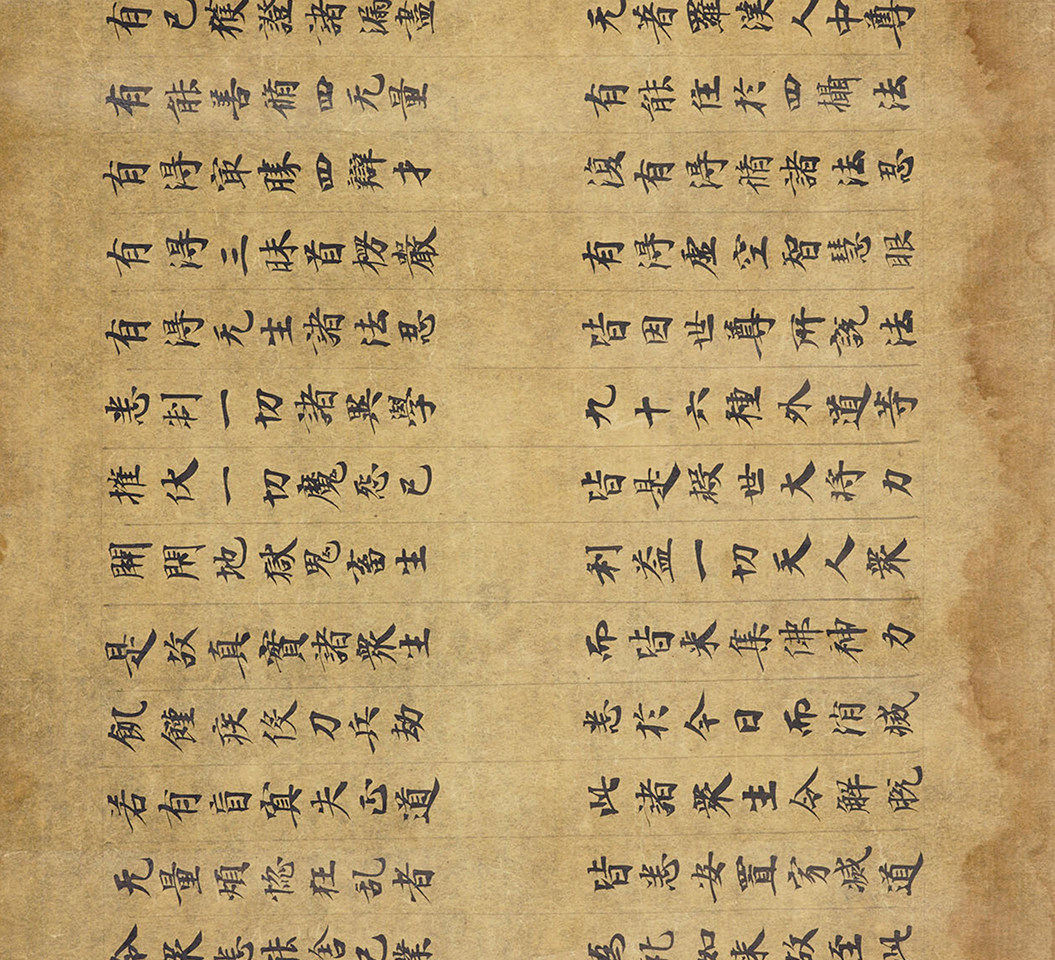 有已獲證諸漏盡　无著羅漢人中尊
有能善脩四无量　有能住於四攝法
有得冣勝四辯才　復有得脩諸法忍
有得三昧首楞嚴　有得虛空智慧眼
有得无生諸法忍　皆因世尊所說法
悉制一切諸異學　九十六種外道等
摧伏一切魔怨已　皆是救世大將力
開閇地獄鬼畜生　利益一切天人眾
是故真實諸眾生　而皆來集佛神力
飢饉疾疫刀兵劫　悉於今日而消滅
若有盲冥失正道　此諸眾生令解脫
无量煩惱狂乱者　皆悉安置寂滅道
令眾悉能捨己業　為礼如來故至此